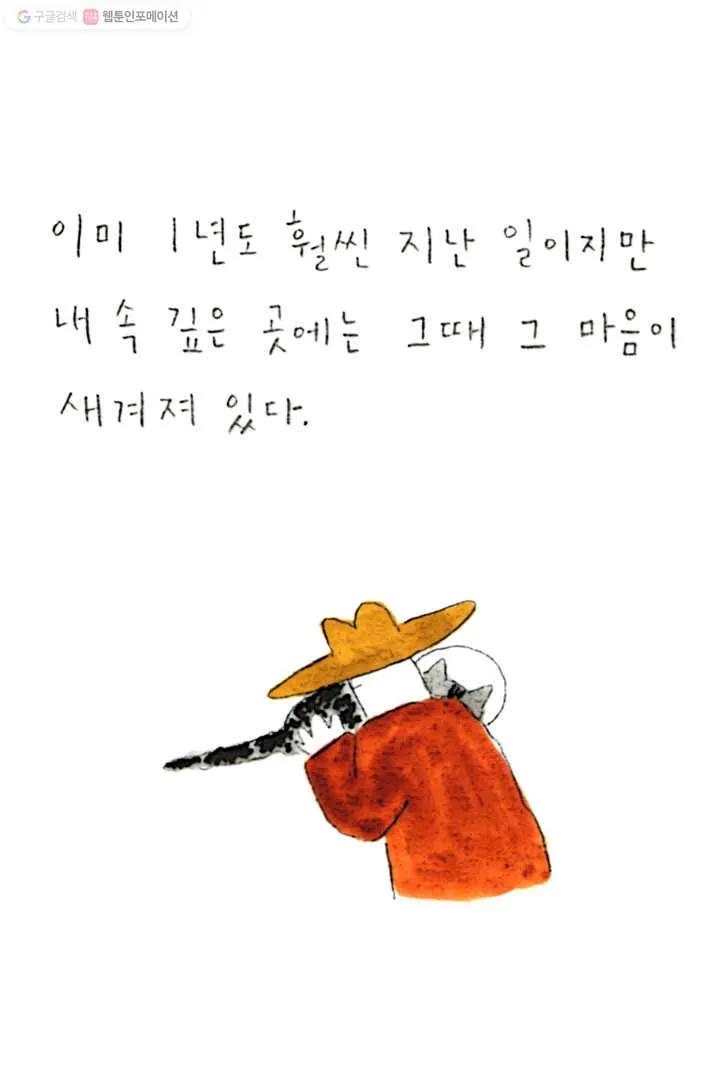 구글검색 웹툰인포메이션
이미 1년도 훨씬 지난 일이지만
내 속 깊은 곳에는 그때 그 마음이
새겨져 있다.